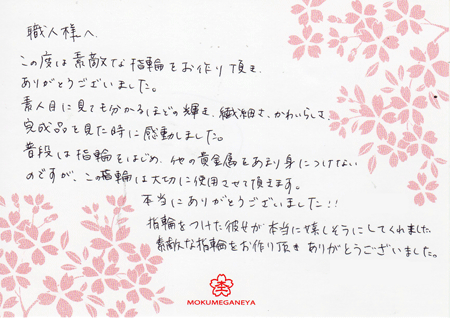 職人様へ
この度は素敵な指輪をお作り頂き、
ありがとうございました。
素人目に見ても分かるほどの輝き、繊細さ、かわいらしさ、
完成品を見た時に感動しました。
普段は指輪をはじめ、他の貴金属をあまり身につけない
のですが、この指輪は大切に使用させて頂きます。
本当にありがとうございました!!
指輪をつけた彼女が本当に嬉しそうにしてくれました。
素敵な指輪をお作り頂きありがとうございました。
MOKUMEGANEYA